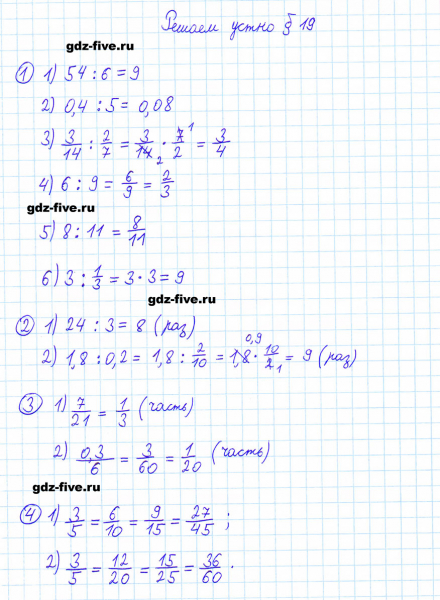 Решаем устно § 19
gdz-five.ru
① 1) 54 : 6 = 9
2) 0,4 : 5 = 0,08
3) 3/14 : 2/7 = 3/14 2 · 7 1/2 = 3/4
4) 6 : 9 = 6/9 = 2/3
gdz-five.ru
5) 8 : 11 = 8/11
6) 3 : 1/3 = 3 · 3 = 9
gdz-five.ru
② 1) 24 : 3 = 8 (раз)
2) 1,8 : 0,2 = 1,8 : 2/10 = 1,8 0,9 · 10/2 1 = 9 (раз)
③ 1) 7/21 = 1/3 (часть)
2) 0,3/6 = 3/60 = 1/20 (часть)
gdz-five.ru
④ 1) 3/5 = 6/10 = 9/15 = 27/45 ;
2) 3/5 = 12/20 = 15/25 = 36/60 .